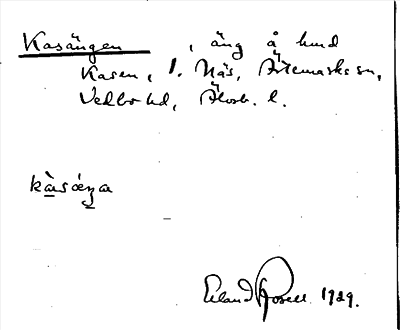 Kasängen, äng å hmd
Kasen, 1. Näs, Ärtemarks sn,
Vedbo hd, Älvsb. l.
kàsæŋa
Erland Rosell 1929.